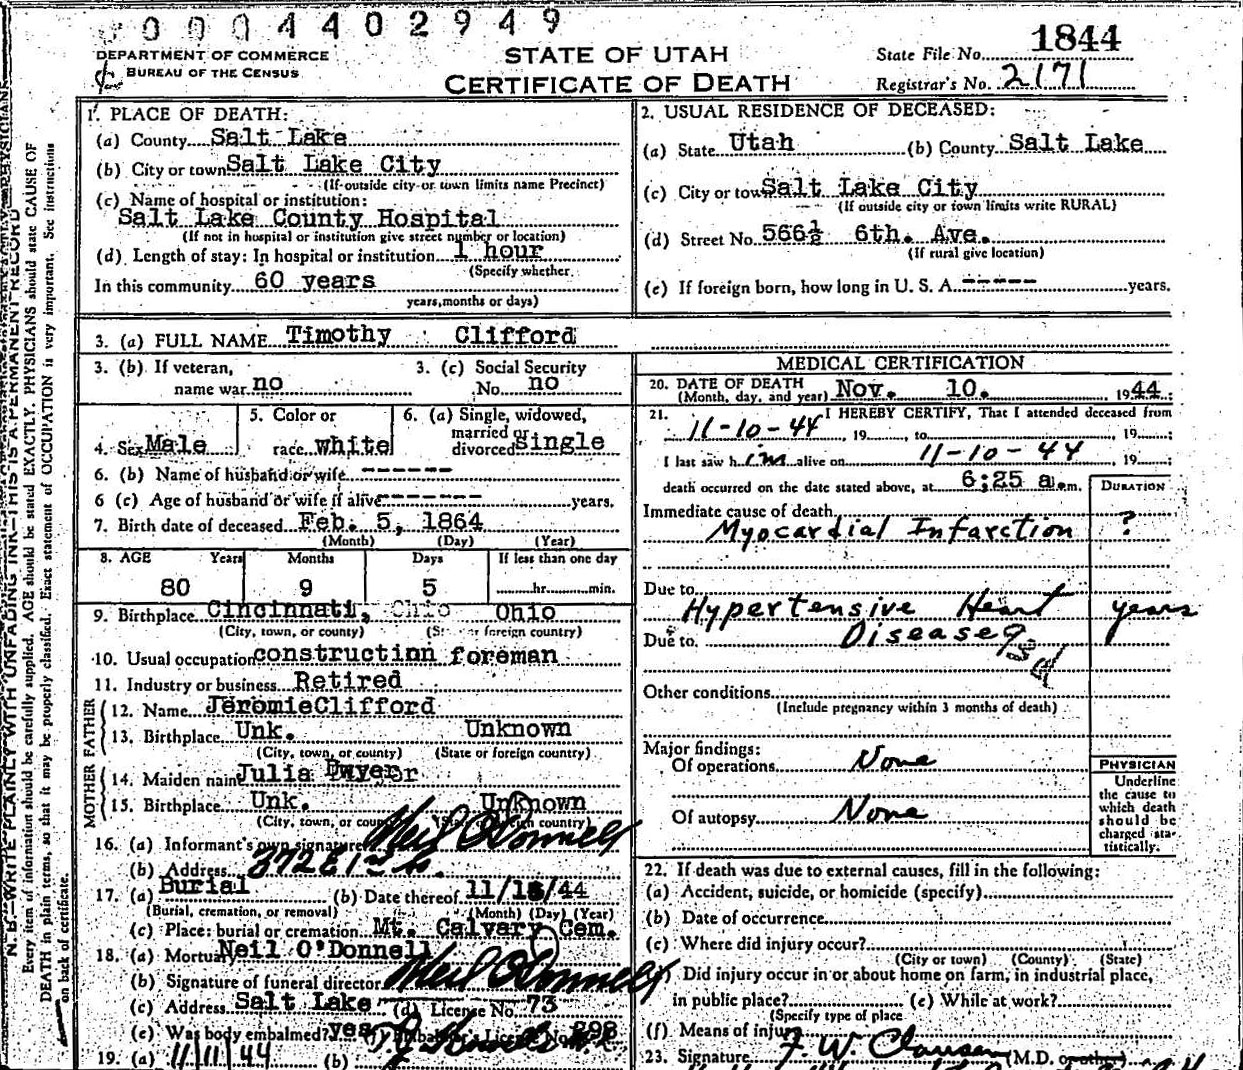 0004402949
DEPARTMENT OF COMMERCE
BUREAU OF THE CENSUS
STATE OF UTAH
CERTIFICATE OF DEATH
State File No. 1844
Registrar's No. 2171
N. B.—WRITE PLAINLY WITH UNFADING INK—THIS IS A PERMANENT RECORD
Every item of information should be carefully supplied. AGE should be stated EXACTLY. PHYSICIANS should state CAUSE OF
DEATH in plain terms, so that it may be properly classified. Exact statement of OCCUPATION is very important. See instructions
on back of certificate.
1. PLACE OF DEATH:
(a) County Salt Lake
(b) City or town Salt Lake City
(If outside city or town limits name Precinct)
(c) Name of hospital or institution:
Salt Lake County Hospital
(If not in hospital or institution give street number or location)
(d) Length of stay: In hospital or institution 1 hour
(Specify whether
In this community 60 years
years, months or days)
2. USUAL RESIDENCE OF DECEASED:
(a) State Utah (b) County Salt Lake
(c) City or town Salt Lake City
(If outside city or town limits write RURAL)
(d) Street No. 566½ 6th. Ave.
(If rural give location)
(e) If foreign born, how long in U. S. A. ----- years.
3. (a) FULL NAME Timothy Clifford
3. (b) If veteran, name war no
3. (c) Social Security No. no
4. Sex Male
5. Color or race white
6. (a) Single, widowed, married or divorced single
6. (b) Name of husband or wife -------
6 (c) Age of husband or wife if alive -------- years.
7. Birth date of deceased Feb. 5, 1864
(Month) (Day) (Year)
8. AGE Years Months Days If less than one day
80 9 5 hr. min.
9. Birthplace Cincinnati, Ohio Ohio
(City, town, or county) (State or foreign country)
10. Usual occupation construction foreman
11. Industry or business Retired
FATHER
12. Name Jeromie Clifford
13. Birthplace Unk. Unknown
(City, town, or county) (State or foreign country)
MOTHER
14. Maiden name Julia Dwyer
15. Birthplace Unk. Unknown
(City, town, or county) (State or foreign country)
16. (a) Informant's own signature Neil O'Donnell
(b) Address 372 E 1st So.
17. (a) Burial (b) Date thereof 11/13/44
(Burial, cremation, or removal) (Month) (Day) (Year)
(c) Place: burial or cremation Mt. Calvary Cem.
18. (a) Mortuary Neil O'Donnell
(b) Signature of funeral director Neil O'Donnell
(c) Address Salt Lake (d) License No. 73
(e) Was body embalmed? yes Embalmer's License No. 298
19. (a) 11/11/44 (b)
MEDICAL CERTIFICATION
20. DATE OF DEATH
(Month, day, and year) Nov. 10. 1944
21. I HEREBY CERTIFY, That I attended deceased from
11-10-44, 19 , to , 19 ;
I last saw him alive on 11-10-44, 19 ;
death occurred on the date stated above, at 6:25 a.m.
DURATION
Immediate cause of death
Myocardial Infarction ?
Due to
Hypertensive Heart years
Due to Disease 93d
Other conditions
(Include pregnancy within 3 months of death)
Major findings:
Of operations None
Of autopsy None
PHYSICIAN
Underline
the cause to
which death
should be
charged sta-
tistically.
22. If death was due to external causes, fill in the following:
(a) Accident, suicide, or homicide (specify)
(b) Date of occurrence
(c) Where did injury occur?
(City or town) (County) (State)
Did injury occur in or about home on farm, in industrial place,
in public place? (e) While at work?
(Specify type of place
(f) Means of injury
23. Signature F. W. Clausen (M.D. or other)